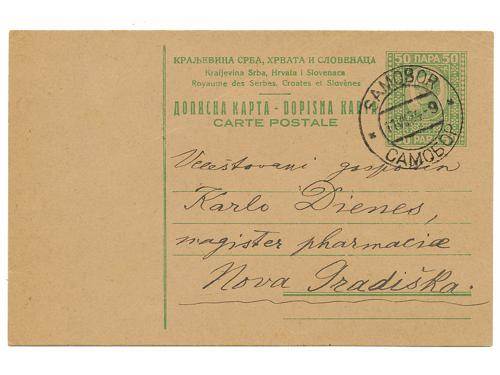 КРАЉЕВИНА СРБА, ХРВАТА И СЛОВЕНАЦА
Kraljevina Srba, Hrvata i Slovenaca
Royaume des Serbes, Croates et Slovènes
ДОПИСНА КАРТА - DOPISNA КАР
CARTE POSTALE
50 ПАРА 50
SAMOBOR
САМОБОР
Velештovani gospodin
Karlo Dienes,
magister pharmaciæ
Nova Gradiška.